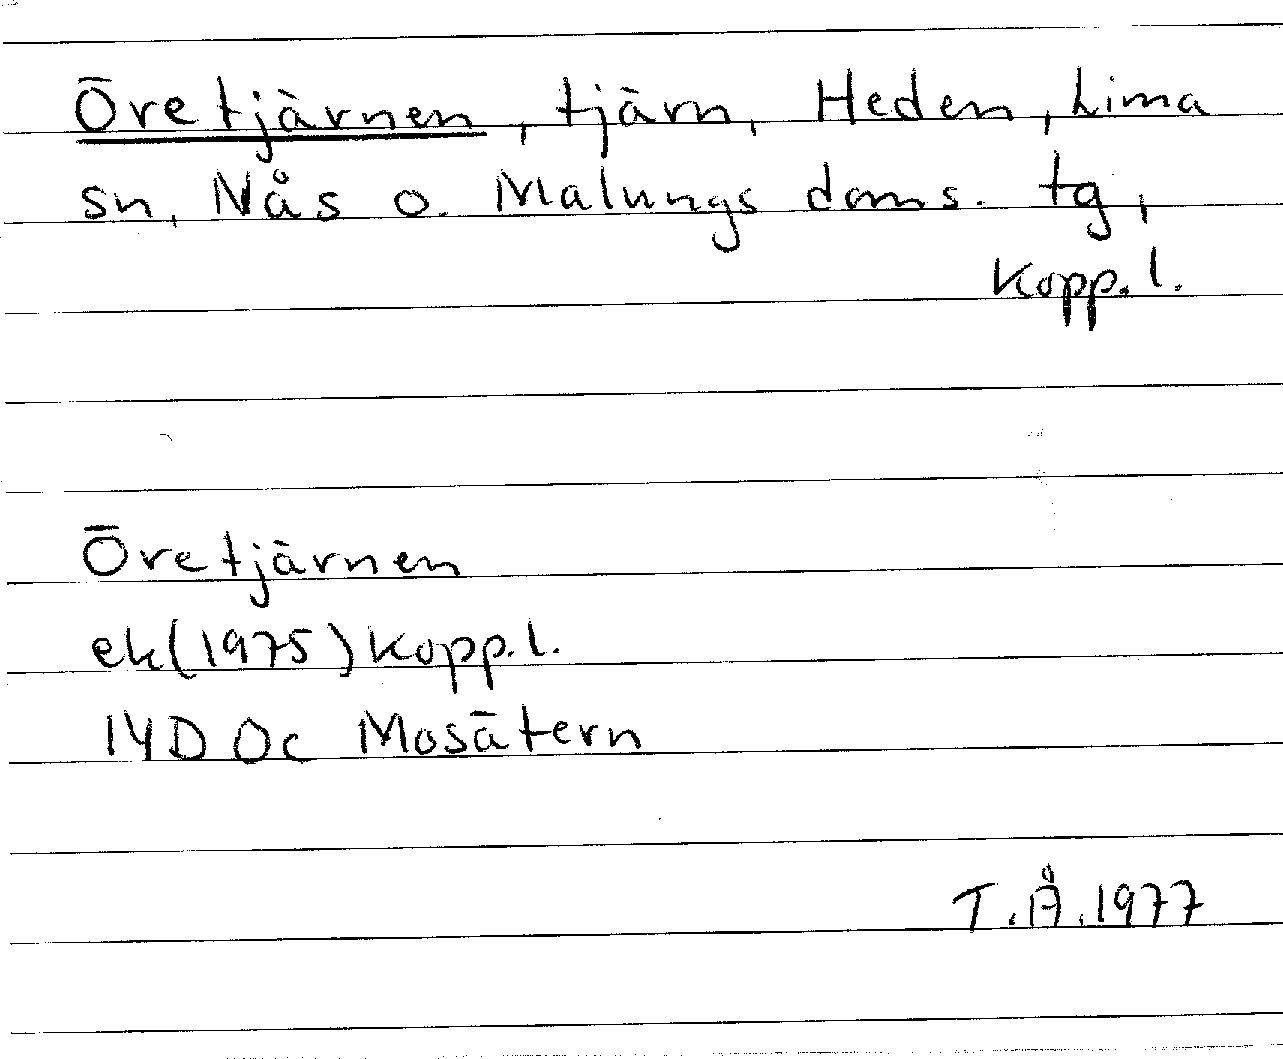 Öretjärnen, tjärn, Heden, Lima
sn, Nås o. Malungs doms. tg,
Kopp.l.
Öretjärnen
ek(1975)Kopp.l.
14D 0c Mosätern
T.Å.1977